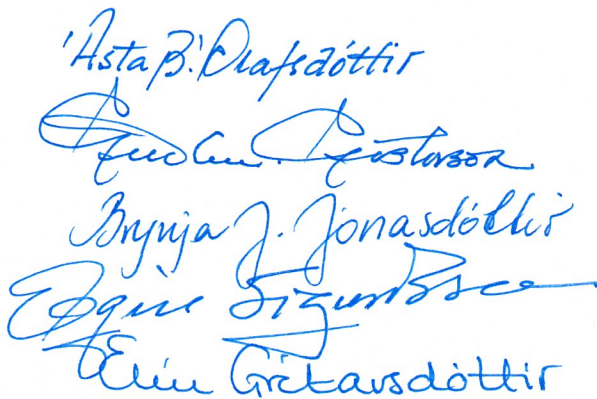 Ásta B. Ólafsdóttir
Gústavsson
Brynja J. Jónasdóttir
Sigurðsson
Elín Grétarsdóttir